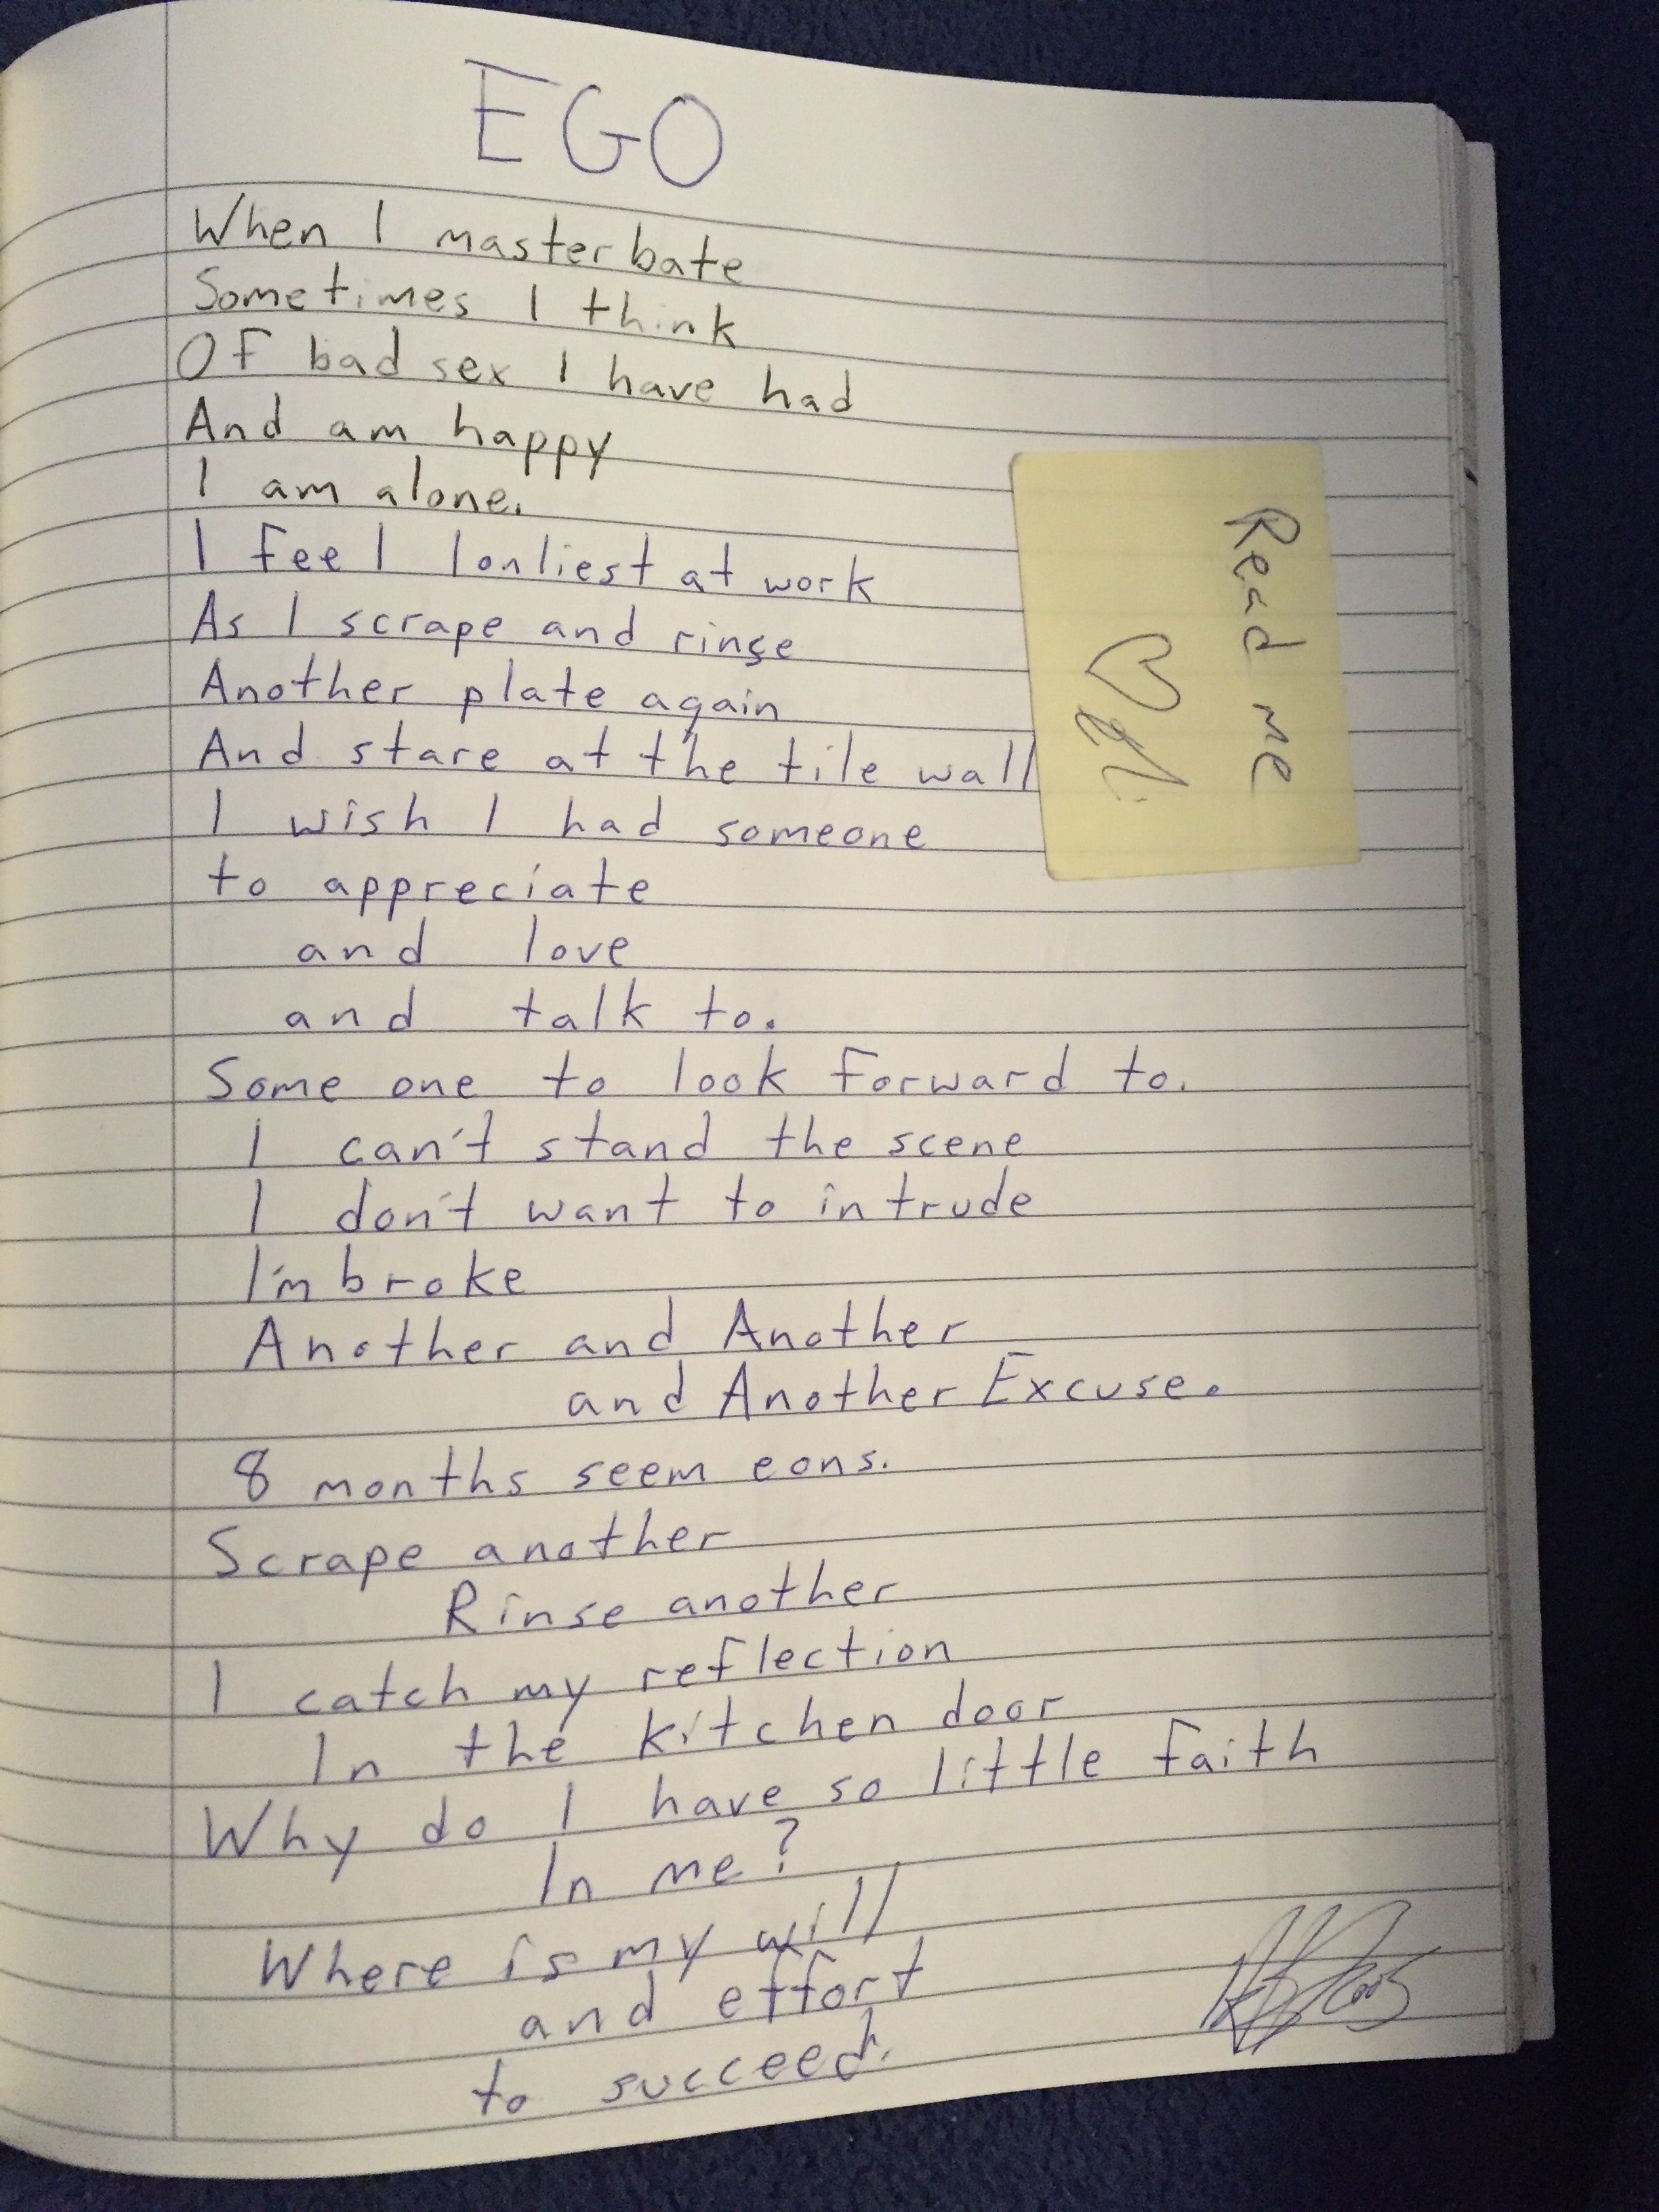 EGO
When I masterbate
Sometimes I think
Of bad sex I have had
And am happy
I am alone.
I feel lonliest at work
As I scrape and rinse
Another plate again
And stare at the tile wall
I wish I had someone
to appreciate
and love
and talk to.
Some one to look forward to.
I can't stand the scene
I don't want to intrude
I'm broke
Another and Another
and Another Excuse.
8 months seem eons.
Scrape another
Rinse another
I catch my reflection
In the kitchen door
Why do I have so little faith
In me?
Where is my will
and effort
to succeed.
Read me